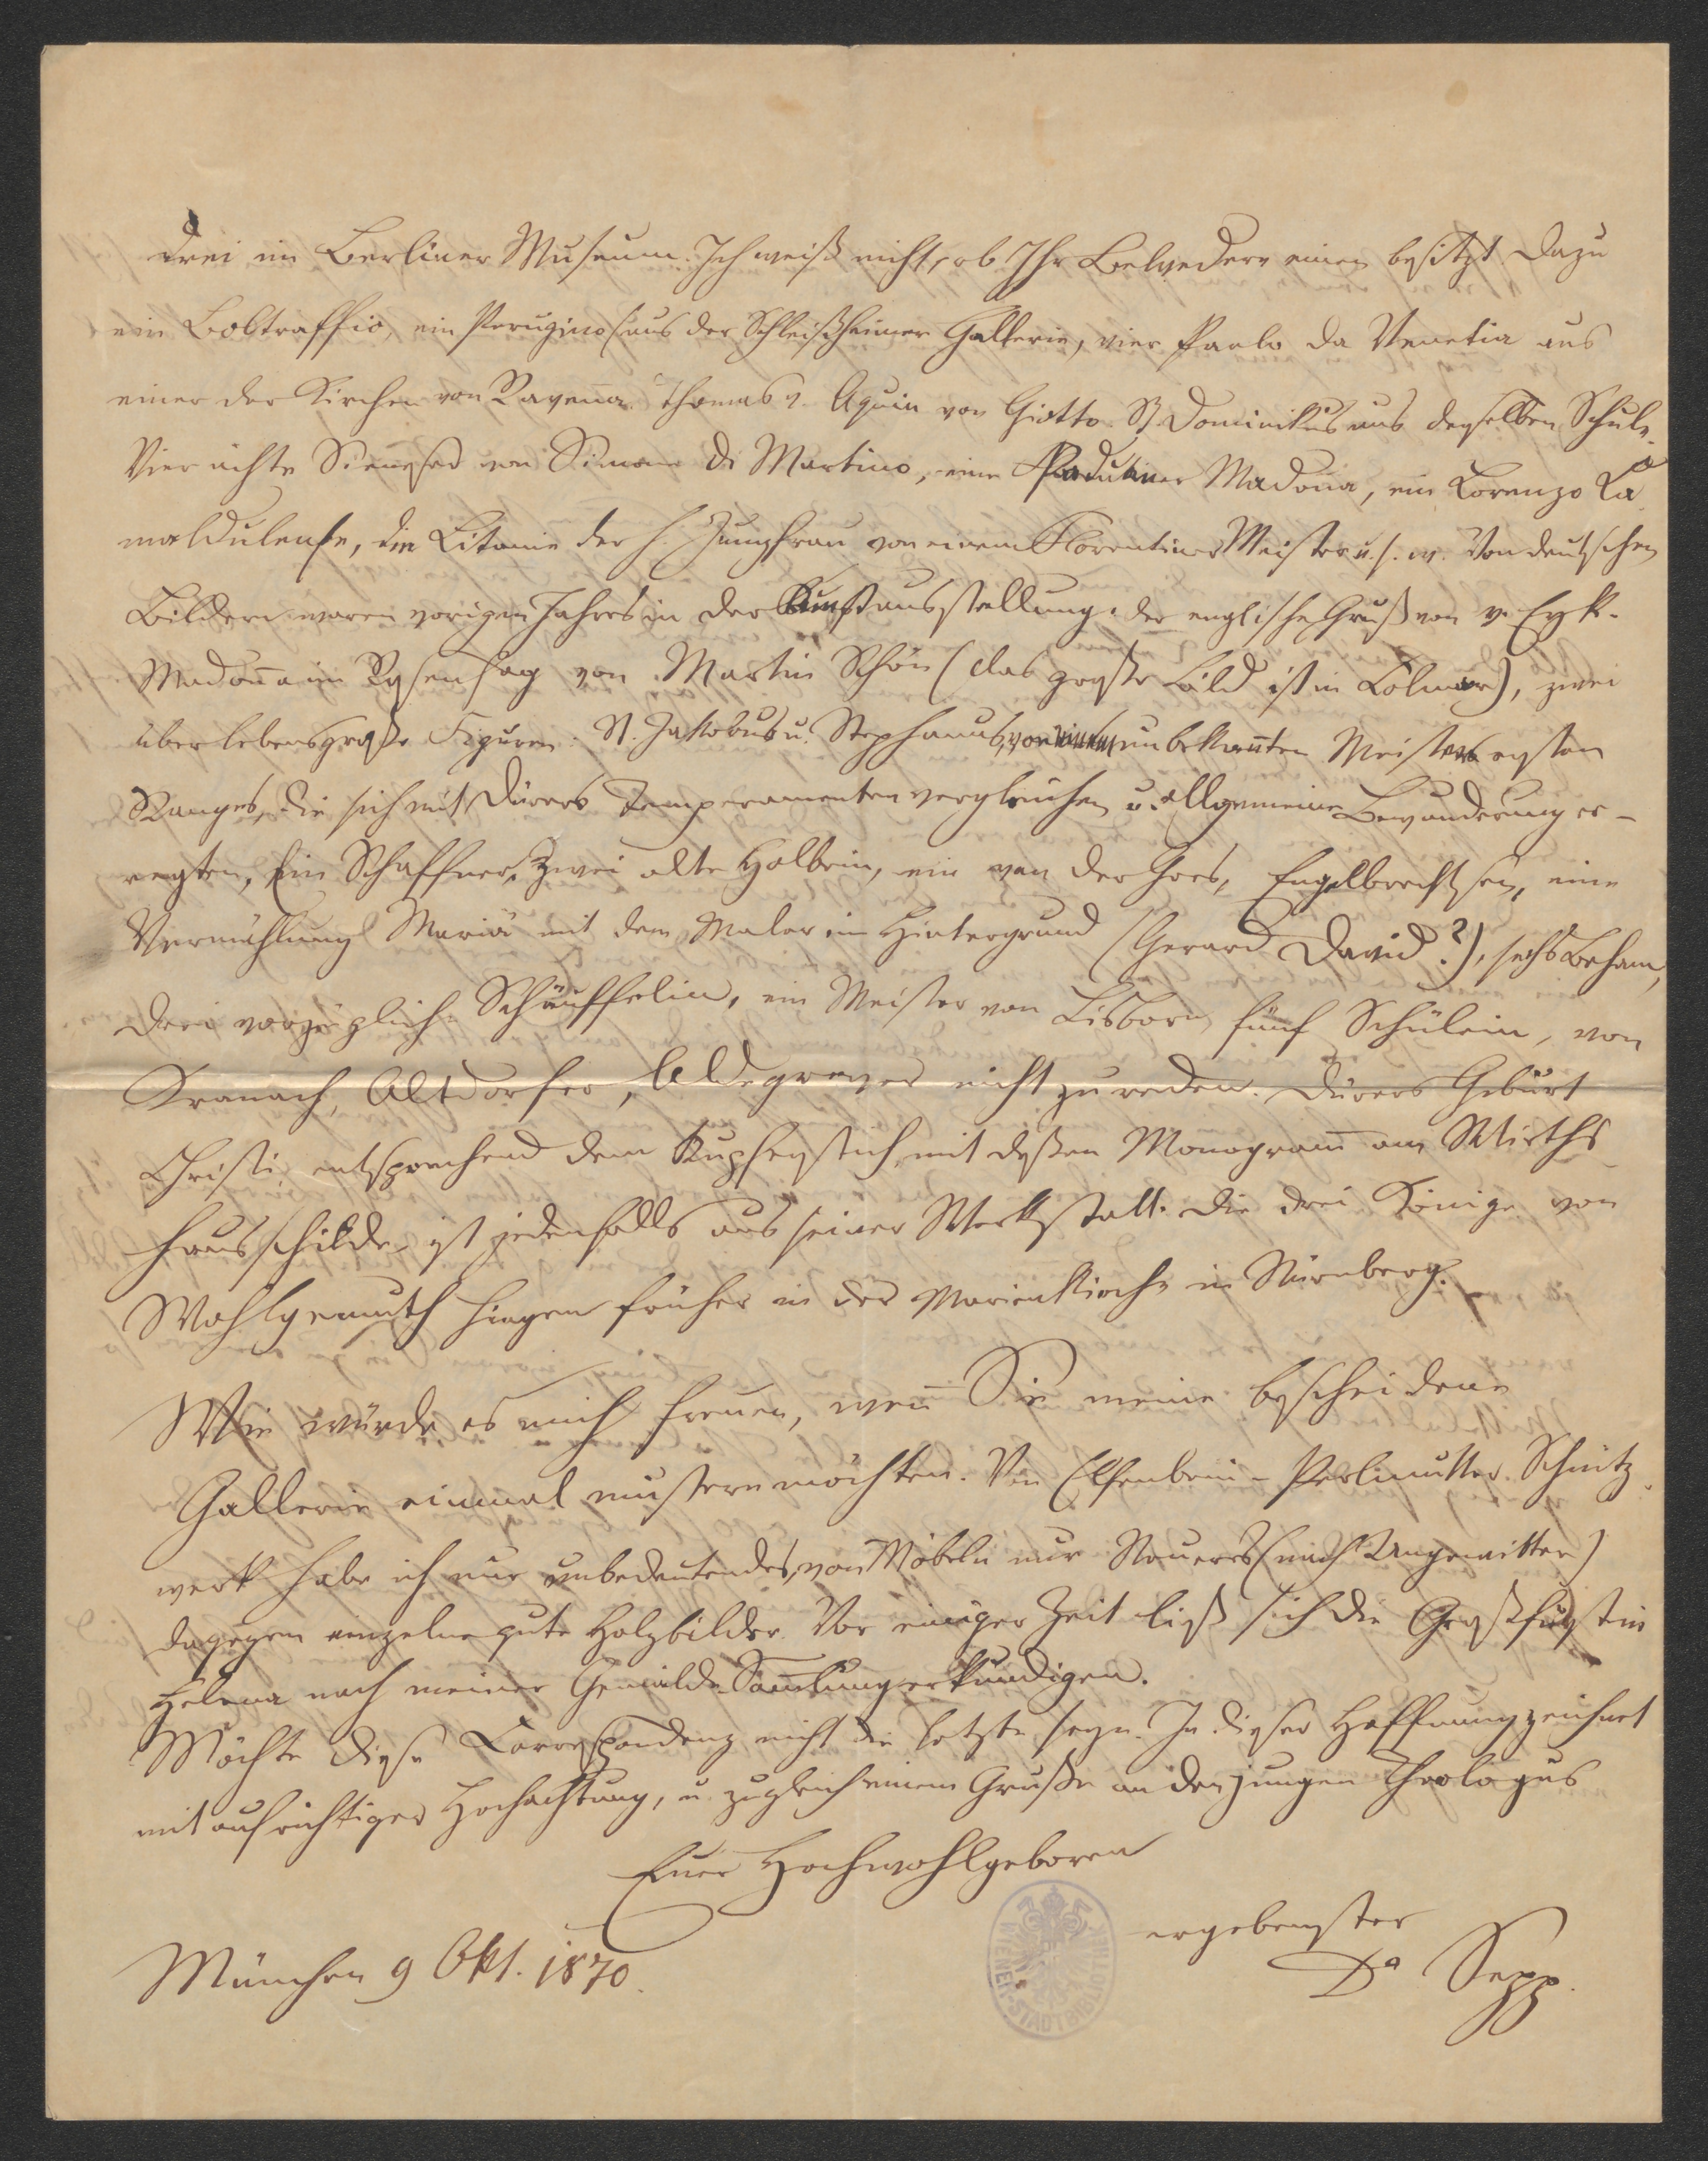 drei im Berliner Museum. Ich weiß nicht, ob Ihr Belvedere einen besitzt. Dazu
ein Boltraffio, ein Perugino (aus der Schleißheimer Gallerie, vier Paolo da Venetia aus
einer der Kirchen von Ravenna. Thomas v. Aquin von Giotto. St. Dominikus aus derselben Schule.
Vier ächte Sienesen von Simone di Martino, eine Paduaner Madonna, ein Lorenzo Ca-
maldulense, die Litanie der h. Jungfrau von einem Florentiner Meister u. s. w. Von deutschen
Bildern waren vorigen Jahres in der Kunstausstellung: der englische Gruß von v. Eyk.
Madonna im Rosenhag von Martin Schön (das große Bild ist in Colmar), zwei
überlebensgroße Figuren: St. Jakobus u. Stephanus, von unbekannten Meistern ersten
Ranges, die sich mit Dürers Temperamenten vergleichen u. allgemeine Bewunderung er-
regten, Ein Schaffner, Zwei alte Holbein, ein van der Goes, Engelbrechtsen, eine
Vermählung Mariä mit dem Maler im Hintergrund (Gerard David?), sechs Beham,
drei vorzügliche Schäuffelin, ein Meister von Lisborn, fünf Schülein, von
Kranach, Altdorfer, Aldegrever nicht zu reden. Dürers Geburt
Christi, entsprechend dem Kupferstich, mit dessen Monogramm am Wirths-
hausschilde, ist jedenfalls aus seiner Werkstatt. Die drei Könige von
Wohlgemuth hingen früher in der Marienkirche in Nürnberg.
Wie würde es mich freuen, wenn Sie meine bescheidene
Gallerie einmal mustern möchten. Von Elfenbein- Perlmutter Schnitz-
werk habe ich nur unbedeutendes, von Möbeln nur Neueres (nach Ungewitter)
dagegen einzelne gute Holzbilder. Vor einiger Zeit ließ sich die Großfürstin
Helena nach meiner Gemälde-Sammlung erkundigen.
Möchte diese Correspondenz nicht die letzte seyn. In dieser Hoffnung zeichnet
mit aufrichtiger Hochachtung, u. zugleich einem Gruße an den jungen Theologus
Euer Hochwohlgeboren
ergebenster
Dr Sepp.
München 9 Okt. 1870.
WIENER STADTBIBLIOTHEK